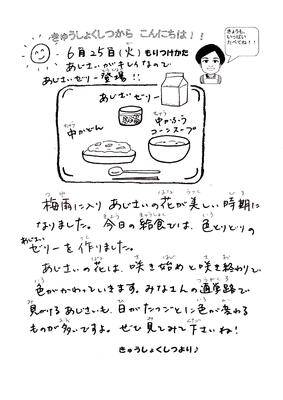 きゅうしょくしつから こんにちは！！
きょうも、
いっぱい
たべてね！！
6月25日(火) もりつけかた
あじさいがキレイなので
あじさいゼリー登場!!
あじさいゼリー
中かどん
中かふう
コーンスープ
梅雨に入り あじさいの花が美しい時期に
なりました。今日の給食では、色とりどりの
ゼリーを作りました。
あじさいの花は、咲き始めと咲き終わりで
色がかわっていきます。みなさんの通学路で
見かけるあじさいも、日がたつごとに色が変わる
ものが多いですよ。ぜひ見てみて下さいね！
きゅうしょくしつより♪